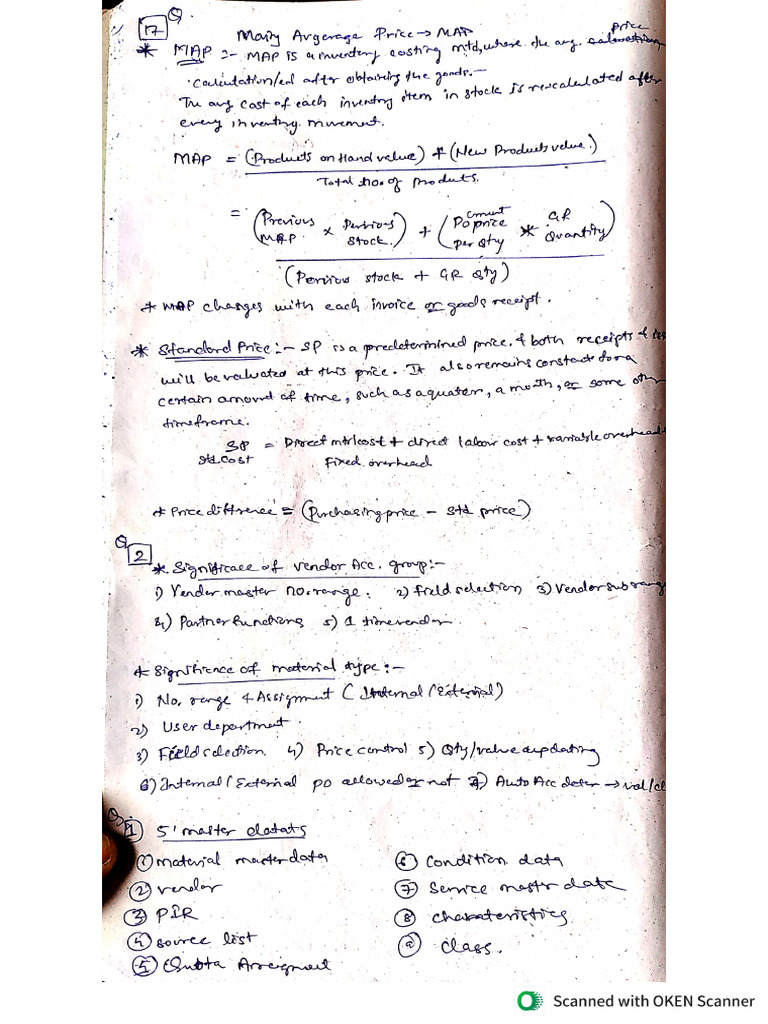 Q
17
Maiy Argerage Price → MAP
* MAP :- MAP is a inventory costing mtd, where the avg. Price
calculation/ed after obtaining the goods.-
The avg cost of each inventory item in stock is re-calculated after
every inventry movement.
MAP = (Products on Hand value) + (New Products value)
Total no. of products.
= (Previous MAP x Pervious Stock) + (Current Po price per Qty * GR Quantity)
(Pervious stock + GR Qty)
* MAP changes with each invoice or goods receipt.
* Standard Price :- SP is a predetermined price. & both receipts &
will be valuated at this price. It also remains constact for a
certain amound of time, such as a quater, a month, or some other
timeframe.
SP = Direct mtrl cost + direct labour cost + variable overhead +
Std. Cost Fixed overhead
* Price difference = (Purchasing price - Std price)
Q
2
* Significace of vendor Acc. group :-
1) Vender master no. range. 2) Field selection 3) Vendor sub range
4) Partner Functions 5) 1 time vendor
* Significance of material type :-
1) No. range & Assignment (Internal/External)
2) User department
3) Field selection 4) Price control 5) Qty/value updating
6) Internal/External po allowed or not 7) Auto Acc deter → val/cl
Q
1 5' master datats
1 material master data
2 vendor
3 PIR
4 source list
5 Quota Arreigment
6 Condition data
7 Service mastr date
8 charateristics
9 class.
Scanned with OKEN Scanner